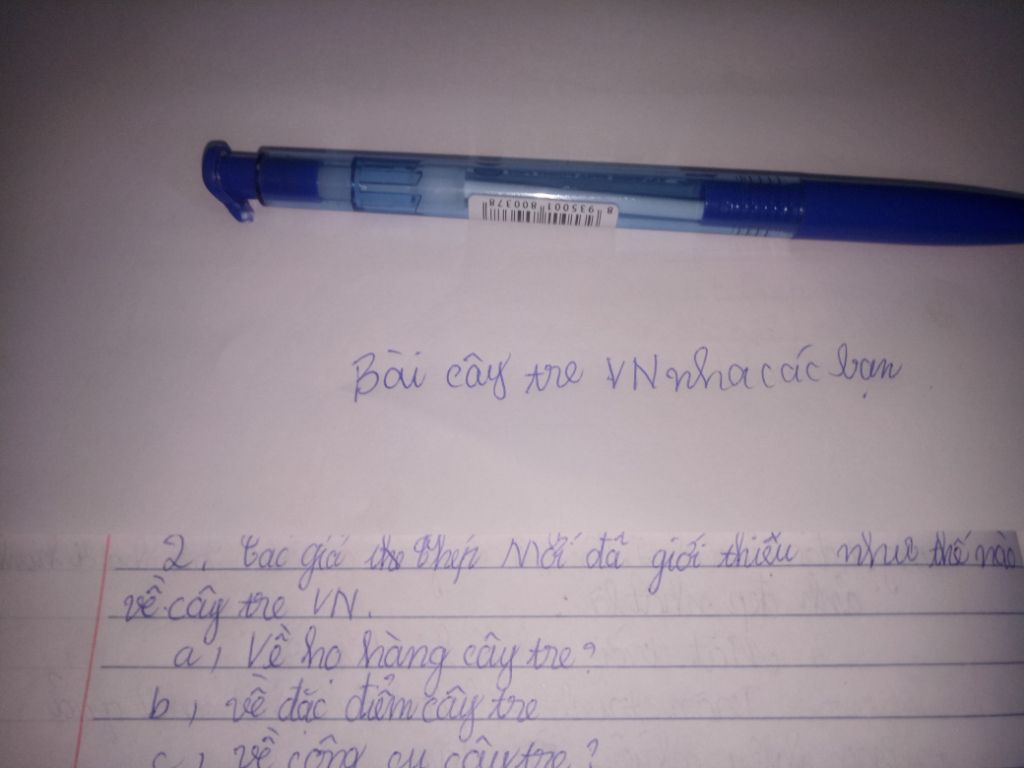 8 935001 800378
Bài cây tre VN nha các bạn
2, Tác giả Thép Mới đã giới thiệu như thế nào
về cây tre VN.
a, Về họ hàng cây tre?
b, về đặc điểm cây tre
c, về công cụ cây tre?